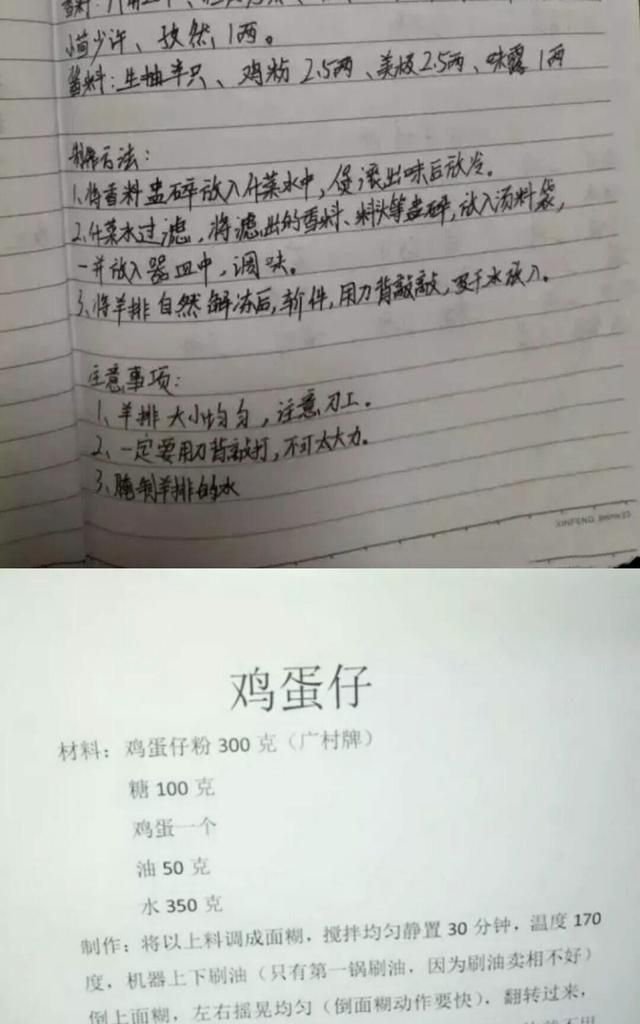 小茴少许、孜然1两。
酱料:生抽半只、鸡粉2.5两、美极2.5两、味露1两
制作方法:
1、将香料盅碎放入什菜水中,煲滚出味后放冷。
2、什菜水过滤,将滤出的香料、料头等盅碎,放入汤料袋,
一并放入器皿中,调味。
3、将羊排自然解冻后,软件,用刀背敲敲,吸干水份放入。
注意事项:
1、羊排大小均匀,注意刀工。
2、一定要用刀背敲打,不可太大力。
3、腌制羊排的水
鸡蛋仔
材料:鸡蛋仔粉 300 克(广村牌)
糖 100 克
鸡蛋一个
油 50 克
水 350 克
制作:将以上料调成面糊,搅拌均匀静置 30 分钟,温度 170
度,机器上下刷油(只有第一锅刷油,因为刷油卖相不好)
倒上面糊,左右摇晃均匀(倒面糊动作要快),翻转过来,